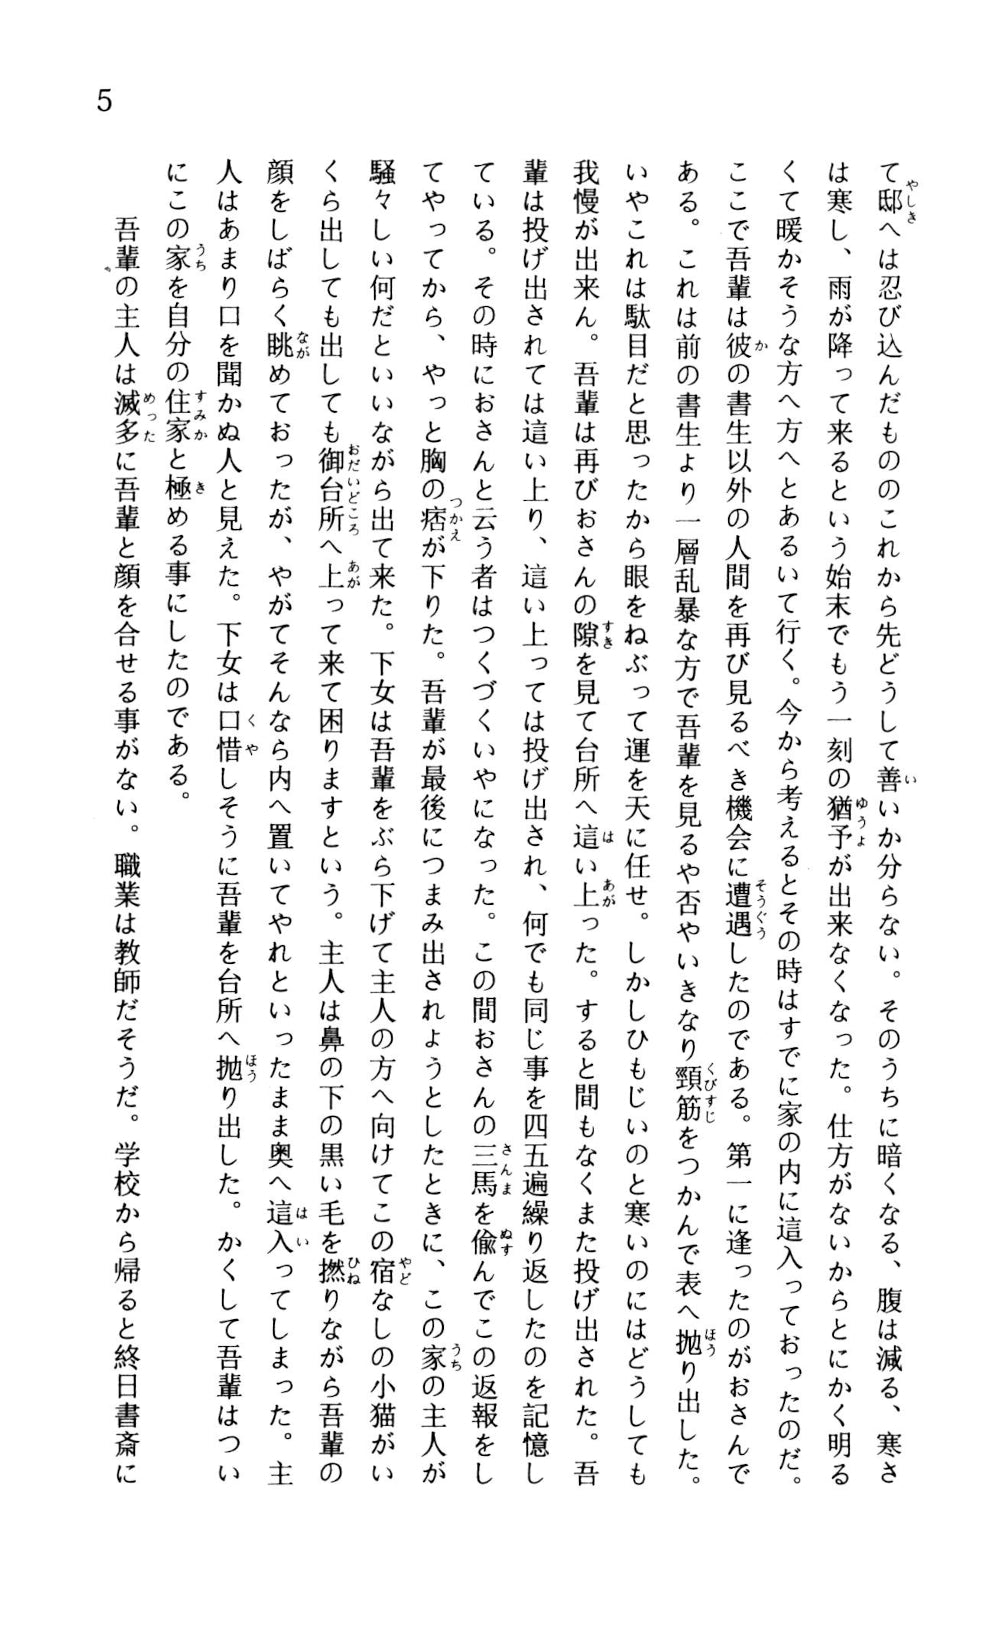 5
て邸へは忍び込んだもののこれから先どうして善いか分らない。そのうちに暗くなる、腹は減る、寒さ
は寒し、雨が降って来るという始末でもう一刻の猶予が出来なくなった。仕方がないからとにかく明る
くて暖かそうな方へ方へとあるいて行く。今から考えるとその時はすでに家の内に這入っておったのだ。
ここで吾輩は彼の書生以外の人間を再び見るべき機会に遭遇したのである。第一に逢ったのがおさんで
ある。これは前の書生より一層乱暴な方で吾輩を見るや否やいきなり頸筋をつかんで表へ抛り出した。
いやこれは駄目だと思ったから眼をねぶって運を天に任せ。しかしひもじいのと寒いのにはどうしても
我慢が出来ん。吾輩は再びおさんの隙を見て台所へ這い上った。すると間もなくまた投げ出された。吾
輩は投げ出されては這い上り、這い上っては投げ出され、何でも同じ事を四五遍繰り返したのを記憶し
ている。その時におさんと云う者はつくづくいやになった。この間おさんの三馬を偸んでこの返報をし
てやってから、やっと胸の痞が下りた。吾輩が最後につまみ出されようとしたときに、この家の主人が
騒々しい何だといいながら出て来た。下女は吾輩をぶら下げて主人の方へ向けてこの宿なしの小猫がい
くら出しても出しても御台所へ上って来て困りますという。主人は鼻の下の黒い毛を撚りながら吾輩の
顔をしばらく眺めておったが、やがてそんなら内へ置いてやれといったまま奥へ這入ってしまった。主
人はあまり口を聞かぬ人と見えた。下女は口惜しそうに吾輩を台所へ抛り出した。かくして吾輩はつい
にこの家を自分の住家と極める事にしたのである。
吾輩の主人は滅多に吾輩と顔を合せる事がない。職業は教師だそうだ。学校から帰ると終日書斎に